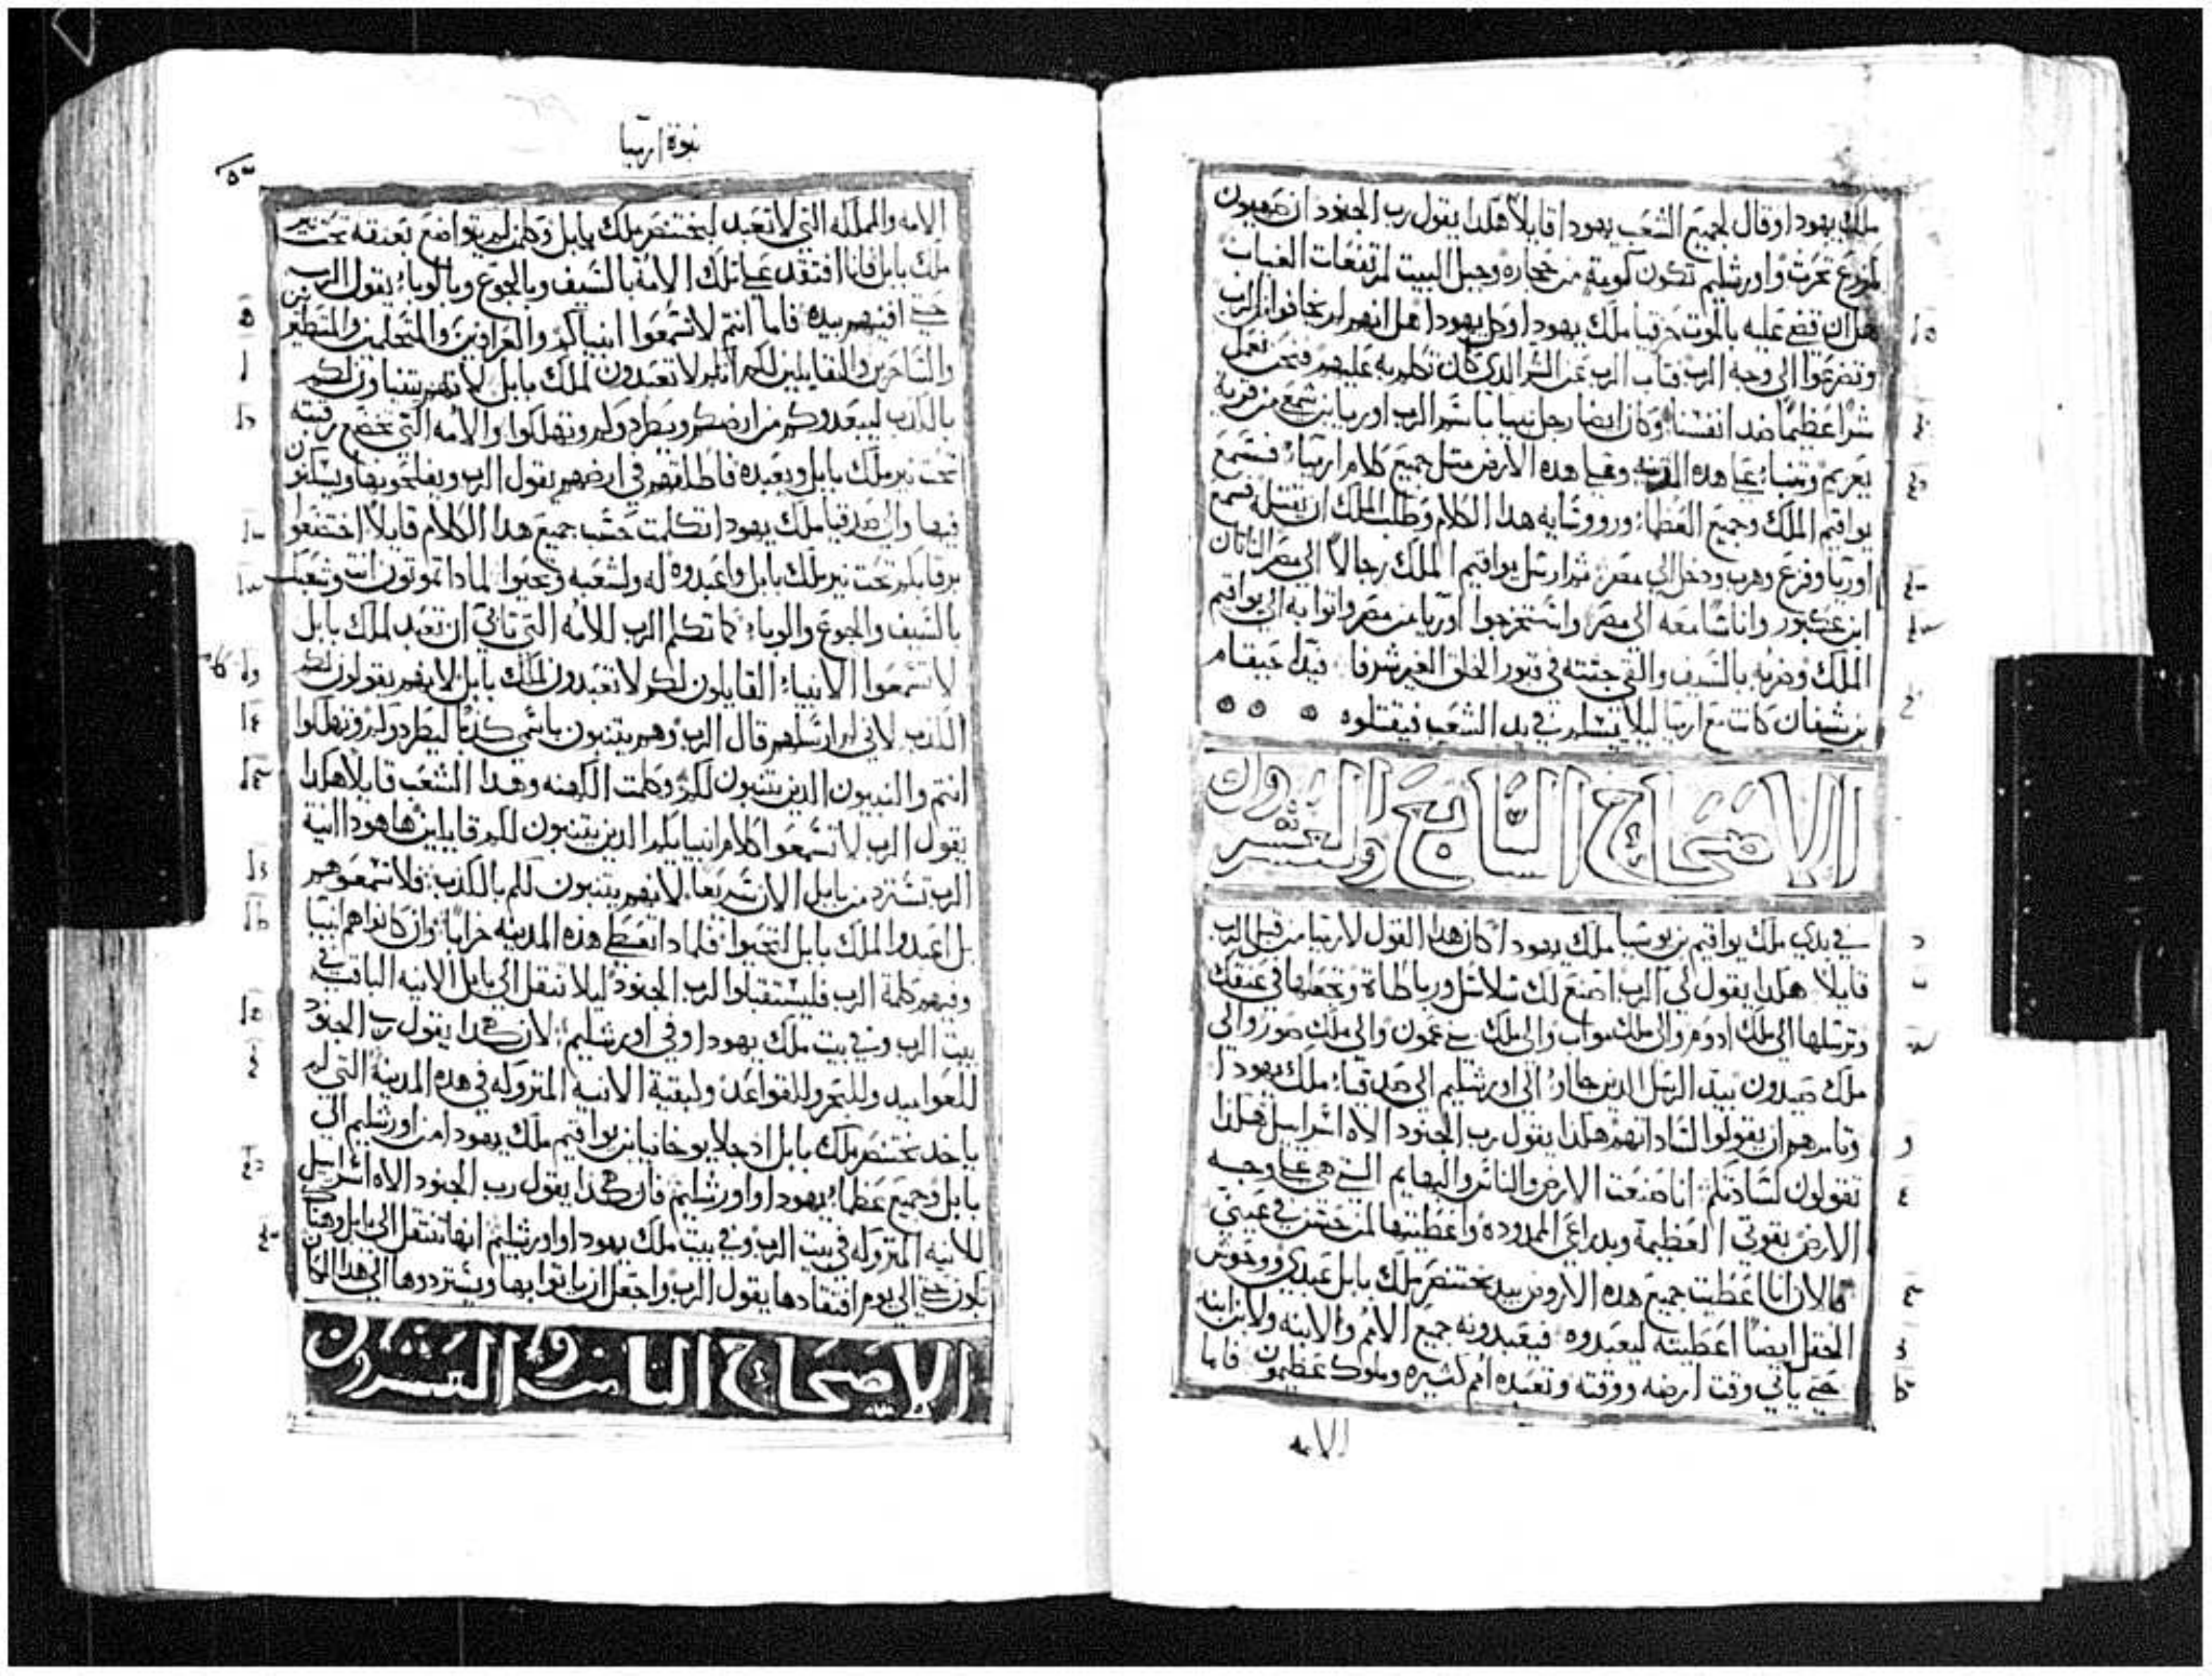 ملك يهودا وقال لجميع الشعب يهودا قايلاً هكدا يقول رب الجنود ان صهيون
لمزرع تحرث واورشليم تكون كومة من حجاره وجبل البيت لمرتفعات الغباب
هل ان قضي عليه بالموت حزقيا ملك يهودا وكل يهودا هل انهم لم يخافوا الرب
وتضرعوا الي وجه الرب فتاب الرب عن الشر الدي كان تكلم به عليهم فنحن نعمل
شراً عظيماً ضد انفسنا وكان ايضا رجل نبيا باسم الرب اوريا بن شمع من قرية
يعريم وتنباء علي هده المدينه وعلي هده الارض مثل جميع كلام ارميا فسمع
يواقيم الملك وجميع العظماء وروو شايه هدا الكلام وطلب الملك ان يقتله فسمع
اوريا وفزع وهرب ودخل الي مصر ثم ارسل يواقيم الملك رجالاً الي مصر الناتان
ابن عكبور واناسا معه الي مصر واستخرجوا اوريا من مصر واتوا به الي يواقيم
الملك وضربه بالسيف والقي جثته في قبور الخلق الغير شرفا فيد احيقام
بن شفان كانت مع ارميا ليلا يسلم في يد الشعب فيقتلوه
الاصحاح السابع والعشرون
في بدي ملك يواقيم بن يوسيا ملك يهودا كان هدا القول لارميا من قبل الرب
قايلا هكدا يقول لي الرب اصنع لك سلاسل ورباطاة وتجعلها في عنقك
وترسلها الي ملك ادوم والي ملك مواب والي ملك بني عمون والي ملك صور والي
ملك صيدون بيد الرسل الدين جاوا الي اورشليم الي صدقيا ملك يهودا
وتامرهم ان يقولوا لساداتهم هكدا يقول رب الجنود الاه اسراييل هكدا
تقولون لساداتكم انا صنعت الارض والناس والبهايم التي هي علي وجه
الارض بقوتي العظيمة وبدراعي الممدوده واعطيتها لمن حسن في عيني
فالان انا اعطيت جميع هده الاروض بيد بختنصر ملك بابل عبدي ووحوش
الحقل ايضاً اعطيته ليعبدوه فيعبدونه جميع الامم والابنه ولابن ابنه
حتي ياتي وقت ارضه ووقته وتعبده امم كثيره وملوك عظيمون فاما
الامه
نبوة ارميا
الامه والمملكه التي لا تعبد لبختنصر ملك بابل وكلمن لم يتواضع بعنقه تحت نير
ملك بابل فانا افتقد علي تلك الامة بالسيف وبالجوع وبالوباء يقول الرب
حتي افنيهم بيده فاما انتم لا تسمعوا انبياكم والعرافين والمتحلمين والمتطيرين
والساحرين والقايلين لكم انكم لا تعبدون لملك بابل لانهم يتنباون لكم
بالكدب ليبعدوكم من ارضكم ويطردوكم وتهلكوا والامه التي تخضع رقبته
تحت نير ملك بابل وتعبده فاطلقهم في ارضهم يقول الرب ويفلحونها ويسكنون
فيها والي صدقيا ملك يهودا تكلمت حسب جميع هدا الكلام قايلاً اخضعوا
برقابكم تحت نير ملك بابل واعبدوه له ولشعبه وتحيوا لمادا تموتون انت وشعبك
بالسيف والجوع والوباء كما تكلم الرب للامه التي تابي ان تعبد لملك بابل
لا تسمعوا الانبياء القايلون لكم لا تعبدون لملك بابل لانهم يقولون لكم
الكدب لاني لم ارسلهم قال الرب وهم يتنبون باسمي كدبا ليطردوكم وتهلكوا
انتم والنبيون الدين يتنبون لكم وكلمت الكهنه وهدا الشعب قايلاً هكدا
يقول الرب لا تسمعوا كلام انبيايكم الدين يتنبون لكم قايلين ها هودا انية
الرب تسترد من بابل الان سريعا لانهم يتنبون لكم بالكدب فلا تسمعوهم
بل اعبدوا لملك بابل لتحيوا فلمادا تعطي هذه المدينه خرابا وان كانوا هم انبيا
وفيهم كلمة الرب فليستقبلوا لرب الجنود ليلا تنقل الي بابل الانيه الباقيه في
بيت الرب وفي بيت ملك يهودا وفي اورشليم لان هكدا يقول رب الجنود
للعواميد وللبحر وللقواعد ولبقية الانيه المتروكه في هده المدينة التي لم
ياخد بختنصر ملك بابل اد جلا يوخانيا بن يواقيم ملك يهودا من اورشليم الي
بابل وجميع عظماء يهودا واورشليم فان هكدا يقول رب الجنود الاه اسراييل
للانيه المتروكه في بيت الرب وفي بيت ملك يهودا واورشليم انها تنتقل الي بابل وهناك
تكون حتي الي يوم افتقادها يقول الرب واجعل ان ياتوا بها ويستردوها الي هدا المكان
الاصحاح الثامن والعشرون